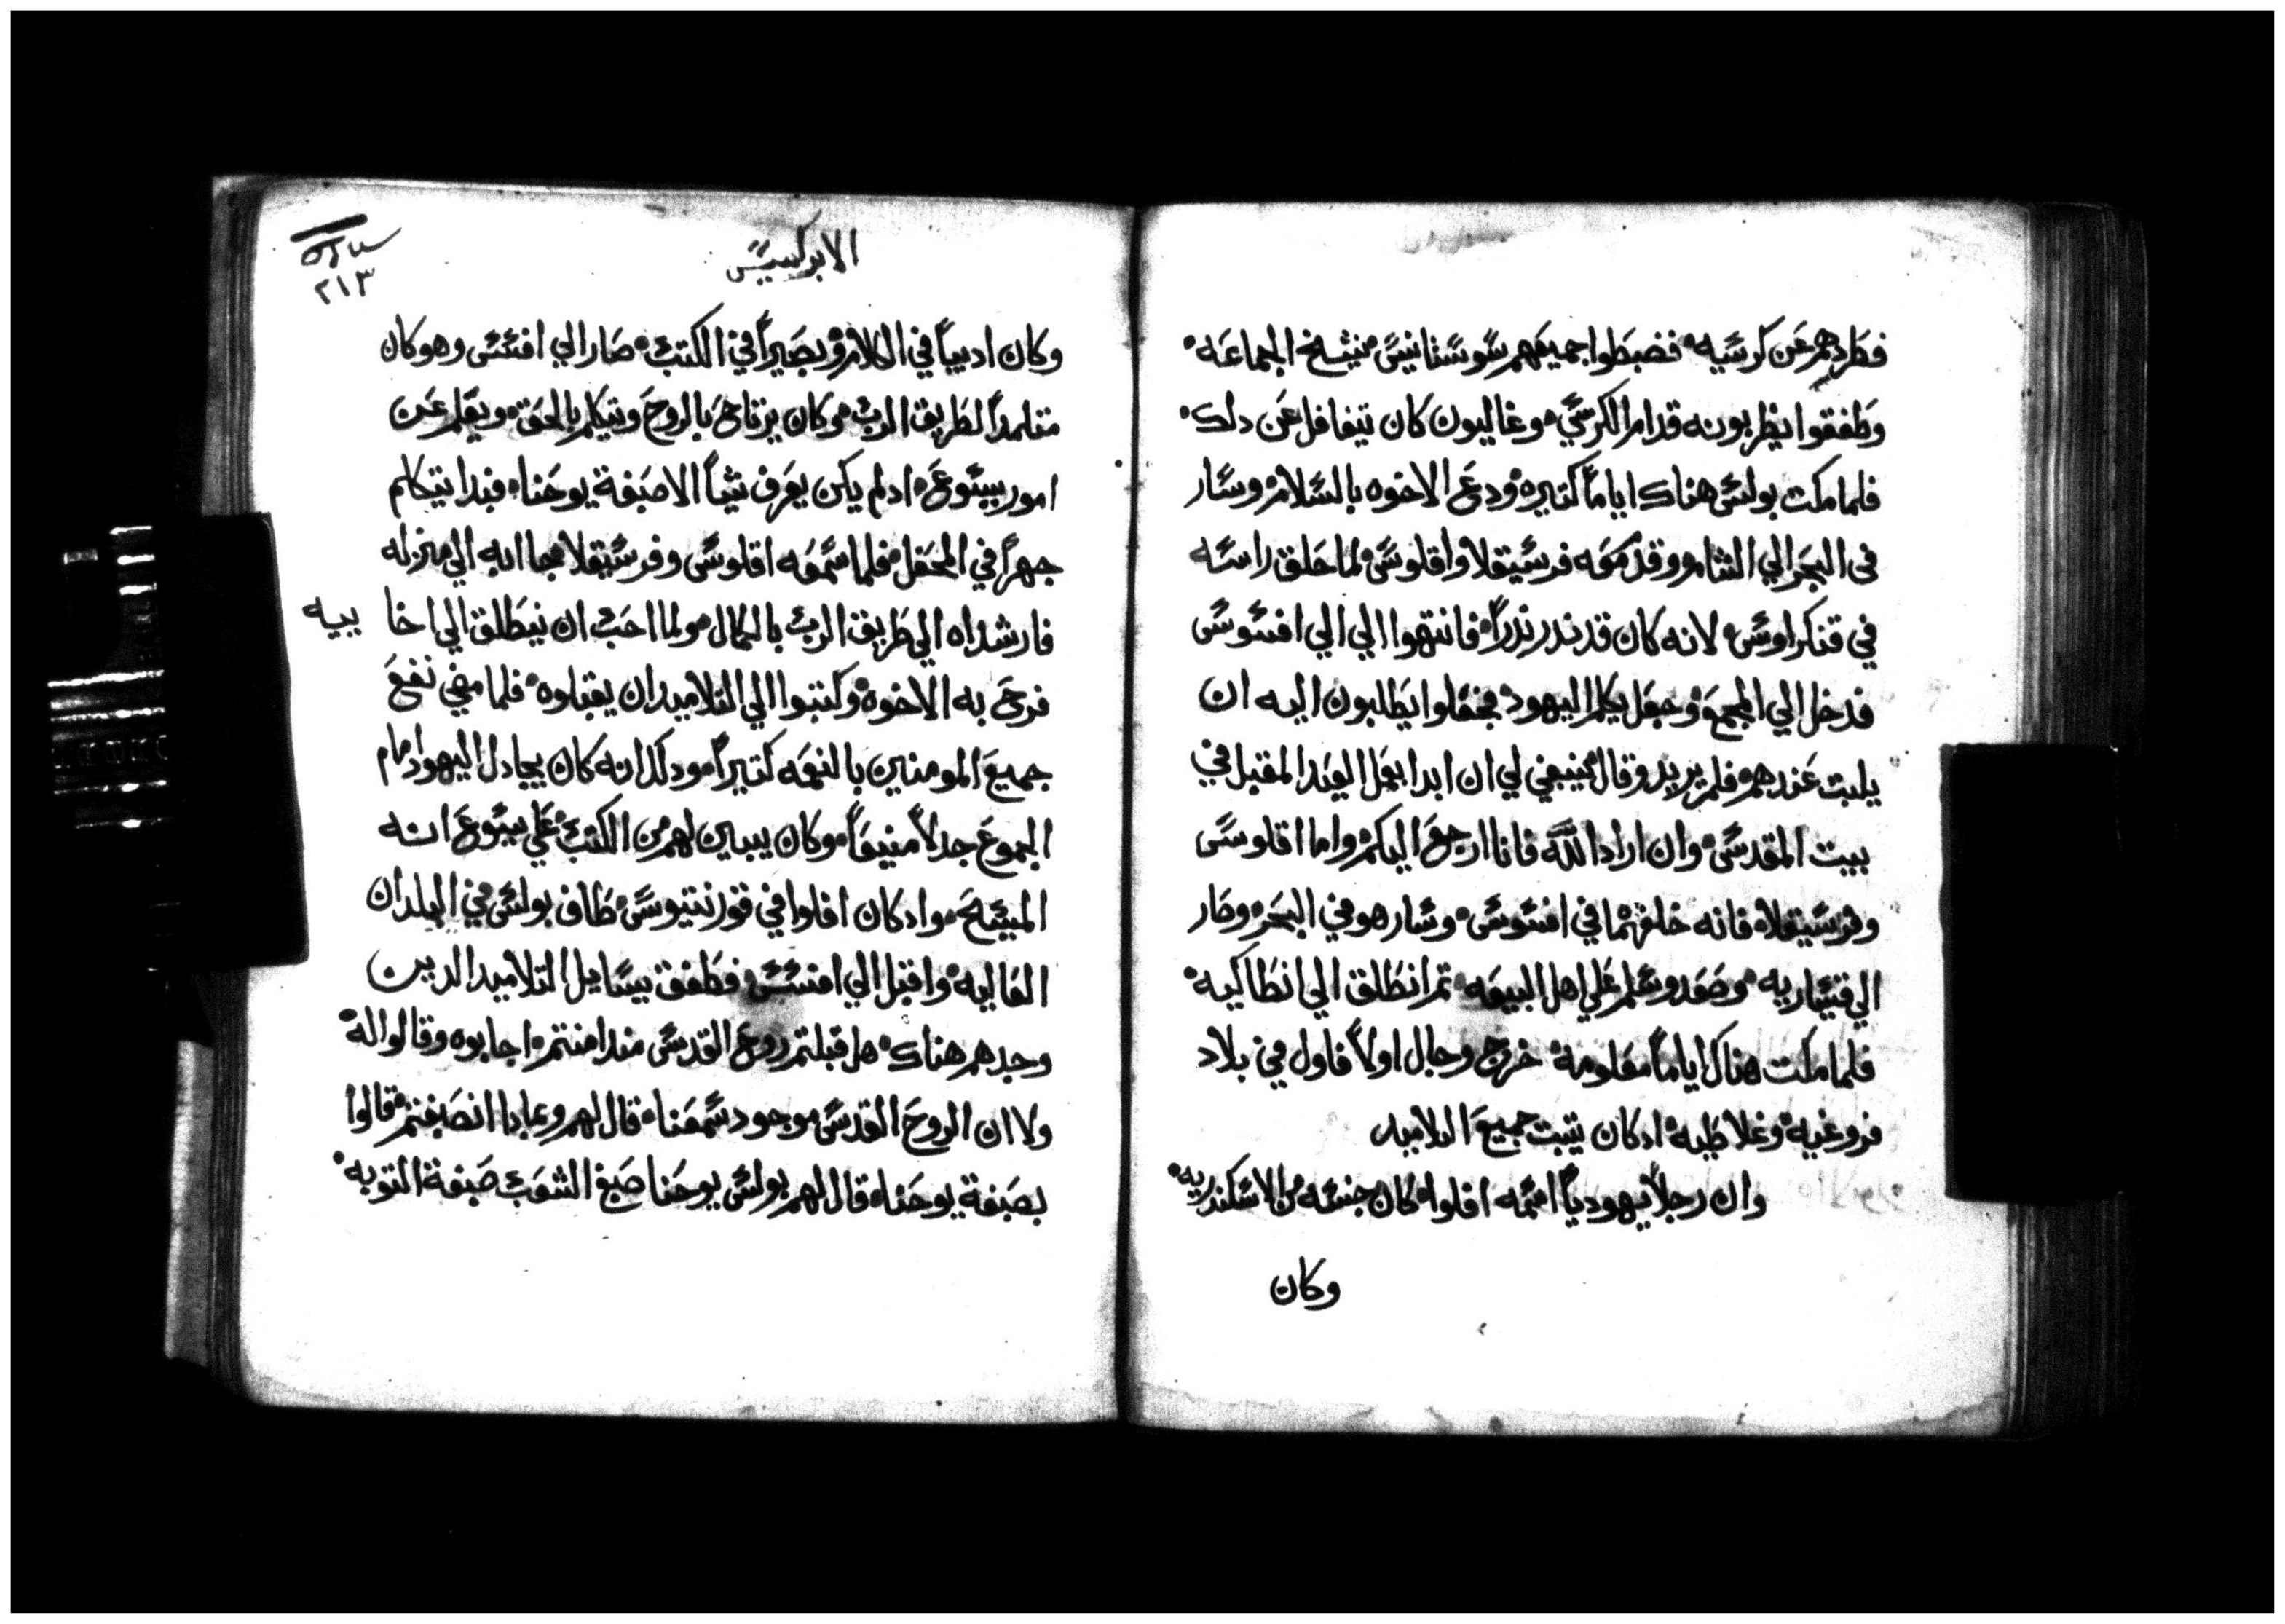 فطردهم عن كرسيه فضبطوا جميعهم سوستانيس شيخ الجماعه
وطفقوا يظربونه قدام الكرسي وغاليون كان يتغافل عن دلك
فلما مكت بولس هناك اياماً كتيره ودع الاخوه بالسلام وسار
في البحر الي الشام وقدم معه فرسيقلا واقلوس لما حلق راسه
في قنكراوس لانه كان قد ندر ندراً فانتهوا الي الي افسوس
فدخل الي المجمع وجعل يكلم اليهود فجعلوا يطلبون اليه ان
يلبت عندهم فلم يريد وقال ينبغي لي ان ابدا بعمل العيد المقبل في
بيت المقدس وان اراد الله فانا ارجع اليكم واما اقلوس
وفرسيقلا فانه خلفهما في افسوس وسار هو في البحر وصار
الي قيساريه وصعد وسلم علي اهل البيعه تم انطلق الي انطاكيه
فلما مكت هناك اياماً معلومه خرج وجال اولاً فاول في بلاد
فروغيه وغلاطيه ادكان يتبت جميع التلاميد
وان رجلاً يهودياً اسمه افلوا كان جنسه من الاسكندريه
وكان
الابركسيس
٢١٣
وكان اديباً في الكلام وبصيراً في الكتب صار الي افسس وهو كان
متلمداً لطريق الرب وكان يرتاح بالروح ويتكلم بالحق ويعلم عن
امور يسوع ادلم يكن يعرف شياً الا صبغة يوحنا فبدا يتكلم
جهراً في المحفل فلما سمعه اقلوس وفرسيقلا جاا به الي منزله
فارشداه الي طريق الرب بالكمال ولما احب ان ينطلق الي اخا ييه
فرح به الاخوه وكتبوا الي التلاميد ان يقبلوه فلما مضي نفع
جميع المومنين بالنعمه كتيراً ودلك انه كان يجادل اليهود امام
الجموع جدلاً منيعاً وكان يبين لهم من الكتب علي يسوع انه
المسيح واد كان افلوا في قورنتيوس طاف بولس في البلدان
العاليه واقبل الي افسس فطفق يسايل التلاميد الدين
وجدهم هناك هل قبلتم روح القدس مند امنتم اجابوه وقالوا له
ولا ان الروح القدس موجود سمعنا قال لهم وبمادا انصبغتم قالوا
بصبغة يوحنا قال لهم بولس يوحنا صبغ الشعب صبغة التوبه